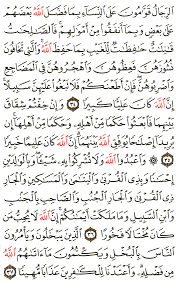 ٱلرِّجَالُ قَوَّٰمُونَ عَلَى ٱلنِّسَآءِ بِمَا فَضَّلَ ٱللَّهُ بَعْضَهُمْ
عَلَىٰ بَعْضٍ وَبِمَآ أَنفَقُوا۟ مِنْ أَمْوَٰلِهِمْ ۚ فَٱلصَّٰلِحَٰتُ
قَٰنِتَٰتٌ حَٰفِظَٰتٌ لِّلْغَيْبِ بِمَا حَفِظَ ٱللَّهُ ۚ وَٱلَّٰتِى تَخَافُونَ
نُشُوزَهُنَّ فَعِظُوهُنَّ وَٱهْجُرُوهُنَّ فِى ٱلْمَضَاجِعِ
وَٱضْرِبُوهُنَّ ۖ فَإِنْ أَطَعْنَكُمْ فَلَا تَبْغُوا۟ عَلَيْهِنَّ سَبِيلًا ۗ
إِنَّ ٱللَّهَ كَانَ عَلِيًّا كَبِيرًا ٣٤ وَإِنْ خِفْتُمْ شِقَاقَ
بَيْنِهِمَا فَٱبْعَثُوا۟ حَكَمًا مِّنْ أَهْلِهِۦ وَحَكَمًا مِّنْ أَهْلِهَآ إِن
يُرِيدَآ إِصْلَٰحًا يُوَفِّقِ ٱللَّهُ بَيْنَهُمَآ ۗ إِنَّ ٱللَّهَ كَانَ عَلِيمًا خَبِيرًا
٣٥ وَٱعْبُدُوا۟ ٱللَّهَ وَلَا تُشْرِكُوا۟ بِهِۦ شَيْـًٔا ۖ وَبِٱلْوَٰلِدَيْنِ
إِحْسَٰنًا وَبِذِى ٱلْقُرْبَىٰ وَٱلْيَتَٰمَىٰ وَٱلْمَسَٰكِينِ وَٱلْجَارِ
ذِى ٱلْقُرْبَىٰ وَٱلْجَارِ ٱلْجُنُبِ وَٱلصَّاحِبِ بِٱلْجَنۢبِ
وَٱبْنِ ٱلسَّبِيلِ وَمَا مَلَكَتْ أَيْمَٰنُكُمْ ۗ إِنَّ ٱللَّهَ لَا يُحِبُّ مَن
كَانَ مُخْتَالًا فَخُورًا ٣٦ ٱلَّذِينَ يَبْخَلُونَ وَيَأْمُرُونَ
ٱلنَّاسَ بِٱلْبُخْلِ وَيَكْتُمُونَ مَآ ءَاتَىٰهُمُ ٱللَّهُ
مِن فَضْلِهِۦ ۗ وَأَعْتَدْنَا لِلْكَٰفِرِينَ عَذَابًا مُّهِينًا ٣٧